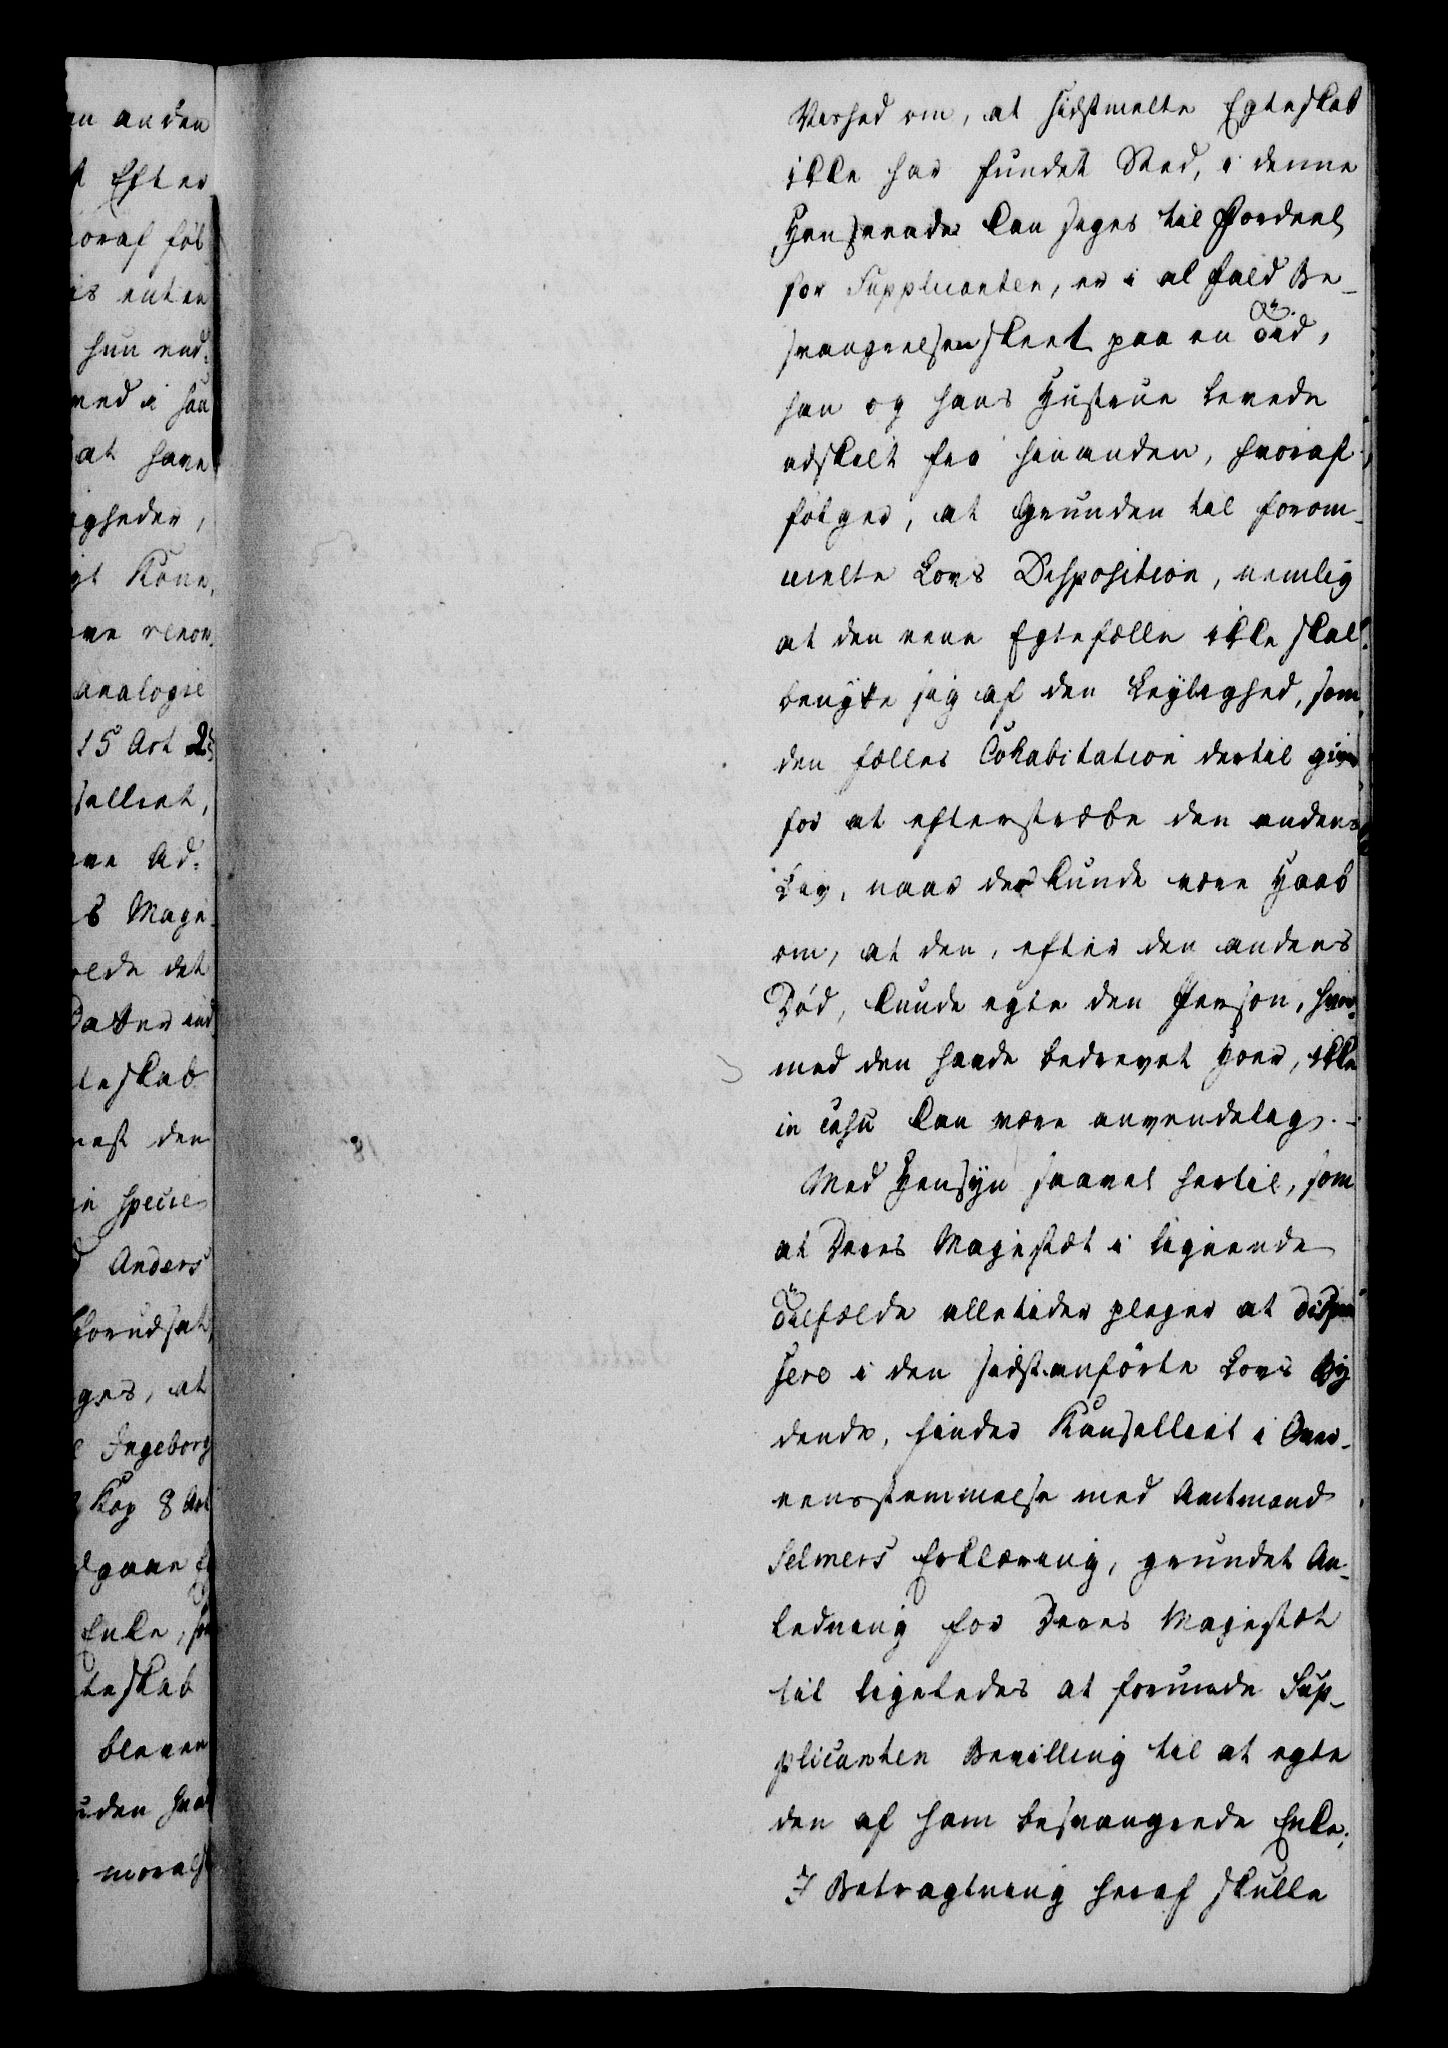 an anden
t Efter
oraf føl
is enten
hun end-
ned i han
at have
gheder,
gt Kone,
analogie
15 Art 2
selliet,
ne Ad-
s Maye
elde det
Dater
teskab
nest den
in specie
d Anders
forudsat,
ges, at
Ingeborg
Kap 8 Art
dgaae
Enke,
teskab
bleven
uden
moralsk
Vished om, at sidstmelte Egteskab
ikke har fundet Sted, i denne
Henseende kan siges til Fordeel
for Supplicanten, er i al Fald Be-
svangrelsen skeet paa en Tid,
han og hans Hustrue levede
adskilt fra hinanden, hvoraf
følger, at Grunden til forom-
melte Lovs Disposition, nemlig
at den eene Egtefælle ikke skal
benytte sig af den Leylighed, som
den fælles Cohabitation dertil giver
for at efterstræbe den anden
Liv, naar der kunde være Haab
om, at den, efter den andens
Død, kunde egte den Person, hvor-
med den havde bedrevet Hoer, ikke
in casu kan være anvendelig. -
Med Hensyn saavel hertil, som
at Deres Majestæt i lignende
Tilfælde alletider pleyer at dispen
sere i den sidstanførte Lovs By
dende, finder Kanselliet i Over-
eensstemmelse med Amtmand
Selmers Erklæring, grundet An-
ledning for Deres Majestæt
til ligeledes at forunde Sup-
plicanten Bevilling til at egte
den af ham besvangrede Enke.
I Betragtning heraf skulle